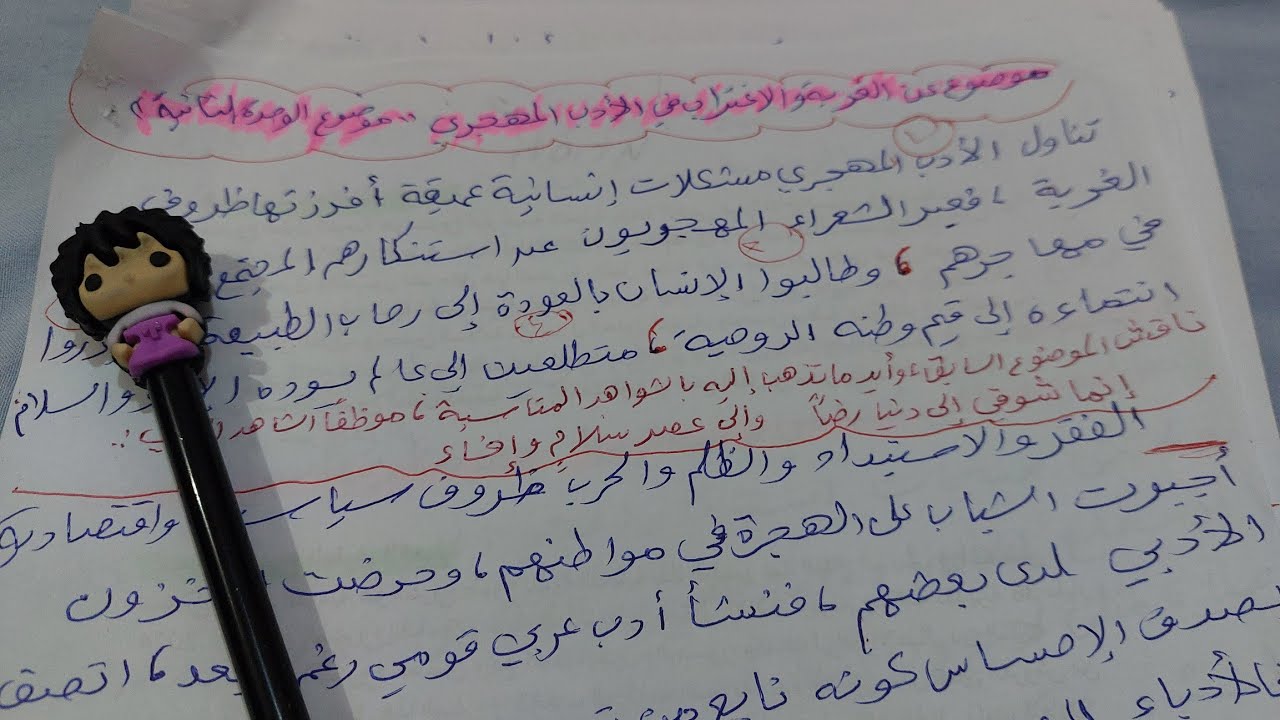 موضوع عن الغربة والاغتراب في الأدب المهجري .. موضوع الوحدة الثانية
تناول الأدب المهجري مشكلات إنسانية عميقة أفرزتها ظروف
الغربة ، فعبر الشعراء المهجريون عن استنكارهم المجتمع
في مهاجرهم ، وطالبوا الإنسان بالعودة إلى رحاب الطبيعة
انتماءه إلى قيم وطنه الروحية ، متطلعين إلى عالم يسوده والسلام
ناقش الموضوع السابق ، وأيد ما تذهب إليه بالشواهد المناسبة ، موظفاً الشاهد
إنما شوقي إلى دنيا رضاً وإلى عصر سلامٍ وإخاء
الفقر والاستبداد والظلم والحرب ظروف واقتصادية
أجبرت الشباب على الهجرة في مواطنهم ، وحرضت
الأدبي لدى بعضهم ، فنشأ أدب عربي قومي رغم ، اتصف
بصدق الإحساس كونه